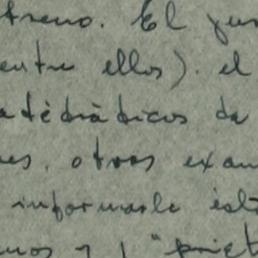 treno. El jur
entre ellos). el
atedráticos de
es. otros exam
informarle está
nos y